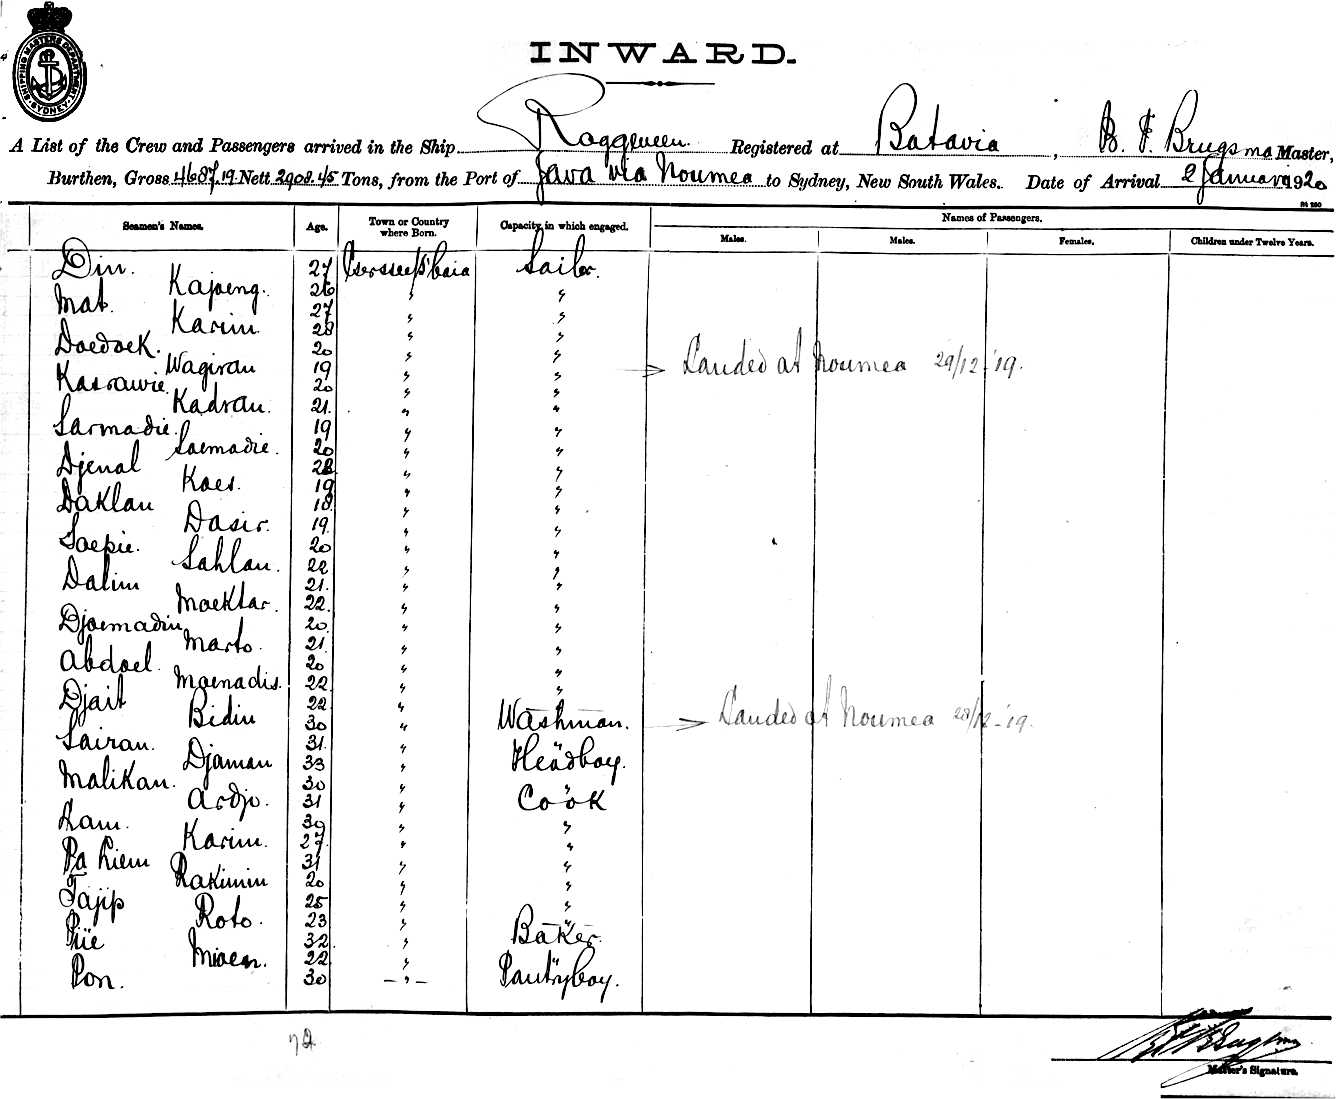 SHIPPING MASTERS DEPARTMENT SYDNEY
INWARD.
A List of the Crew and Passengers arrived in the Ship Roggeveen. Registered at Batavia, B. F. Brugsma Master,
Burthen, Gross 4687.19 Nett 2908.45 Tons, from the Port of Java via Noumea to Sydney, New South Wales. Date of Arrival 2 January 1920
Seamen's Names. Age. Town or Country where Born. Capacity in which engaged. Names of Passengers.
Males. Males. Females. Children under Twelve Years.
Din. 27 Sailor.
Kajoeng. 26 " "
Mat. 27 " "
Karim. 28 " "
Doedoek. 20 " "
Wagiran 19 " " Landed at Noumea 29/12-'19.
Kasrawie 20 " "
Kadran. 21. " "
Sarmadie. 19 " "
Saemadie. 20 " "
Djenal " "
Kaes. 19 " "
Daklan 18 " "
Dasir. 19. " "
Saepie. 20 " "
Sahlan. 22 " "
Dalim 21. " "
Moektar. 22. " "
Djoemadin 20. " "
Marto. 21. " "
Abdoel. 20 " "
Moenadis. 22 " "
Djait 22 " "
Bidin 30 " Washman. Landed at Noumea 28/12-'19.
Sairan. 31. " "
Djaman 33 " Headboy.
Malikan. 30 " "
Ardjo. 31 " Cook
Lam. 39 " "
Karim. 27. " "
Pa Liem 31 " "
Rakimin 20 " "
Tajip 25 " "
Roto. 23 " "
Piie 32 " Baker.
Moen. 22 " "
Pon. 30 - " - Pantryboy.
72
Master's Signature.